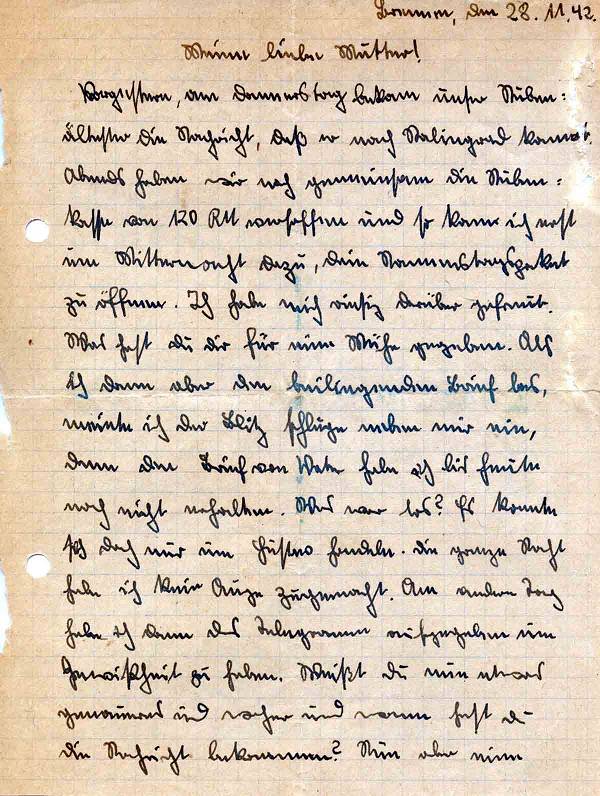 Bremen, den 28. 11. 42.
Meine liebe Mutter!
Vorgestern, am Donnerstag bekam unser Stuben=
ältester die Nachricht, daß er nach Stalingrad kommt.
Abends haben wir noch gemeinsam die Stuben=
kasse von 120 RM versoffen und so kam ich erst
um Mitternacht dazu, dein Namenstagspaket
zu öffnen. Ich habe mich riesig darüber gefreut.
Was hast du dir für eine Mühe gegeben. Als
ich dann aber den beiliegenden Brief las,
meinte ich der Blitz schlüge neben mir ein,
denn den Brief von Vater habe ich bis heute
noch nicht erhalten. Was war los? Es konnte
sich doch nur um Gustav handeln. die ganze Nacht
habe ich kein Auge zugemacht. Am andern Tag
habe ich dann das Telegramm aufgegeben um
Gewißheit zu haben. Weißt du nun etwas
genaueres und woher und wann hast du
die Nachricht bekommen? Nun aber eine